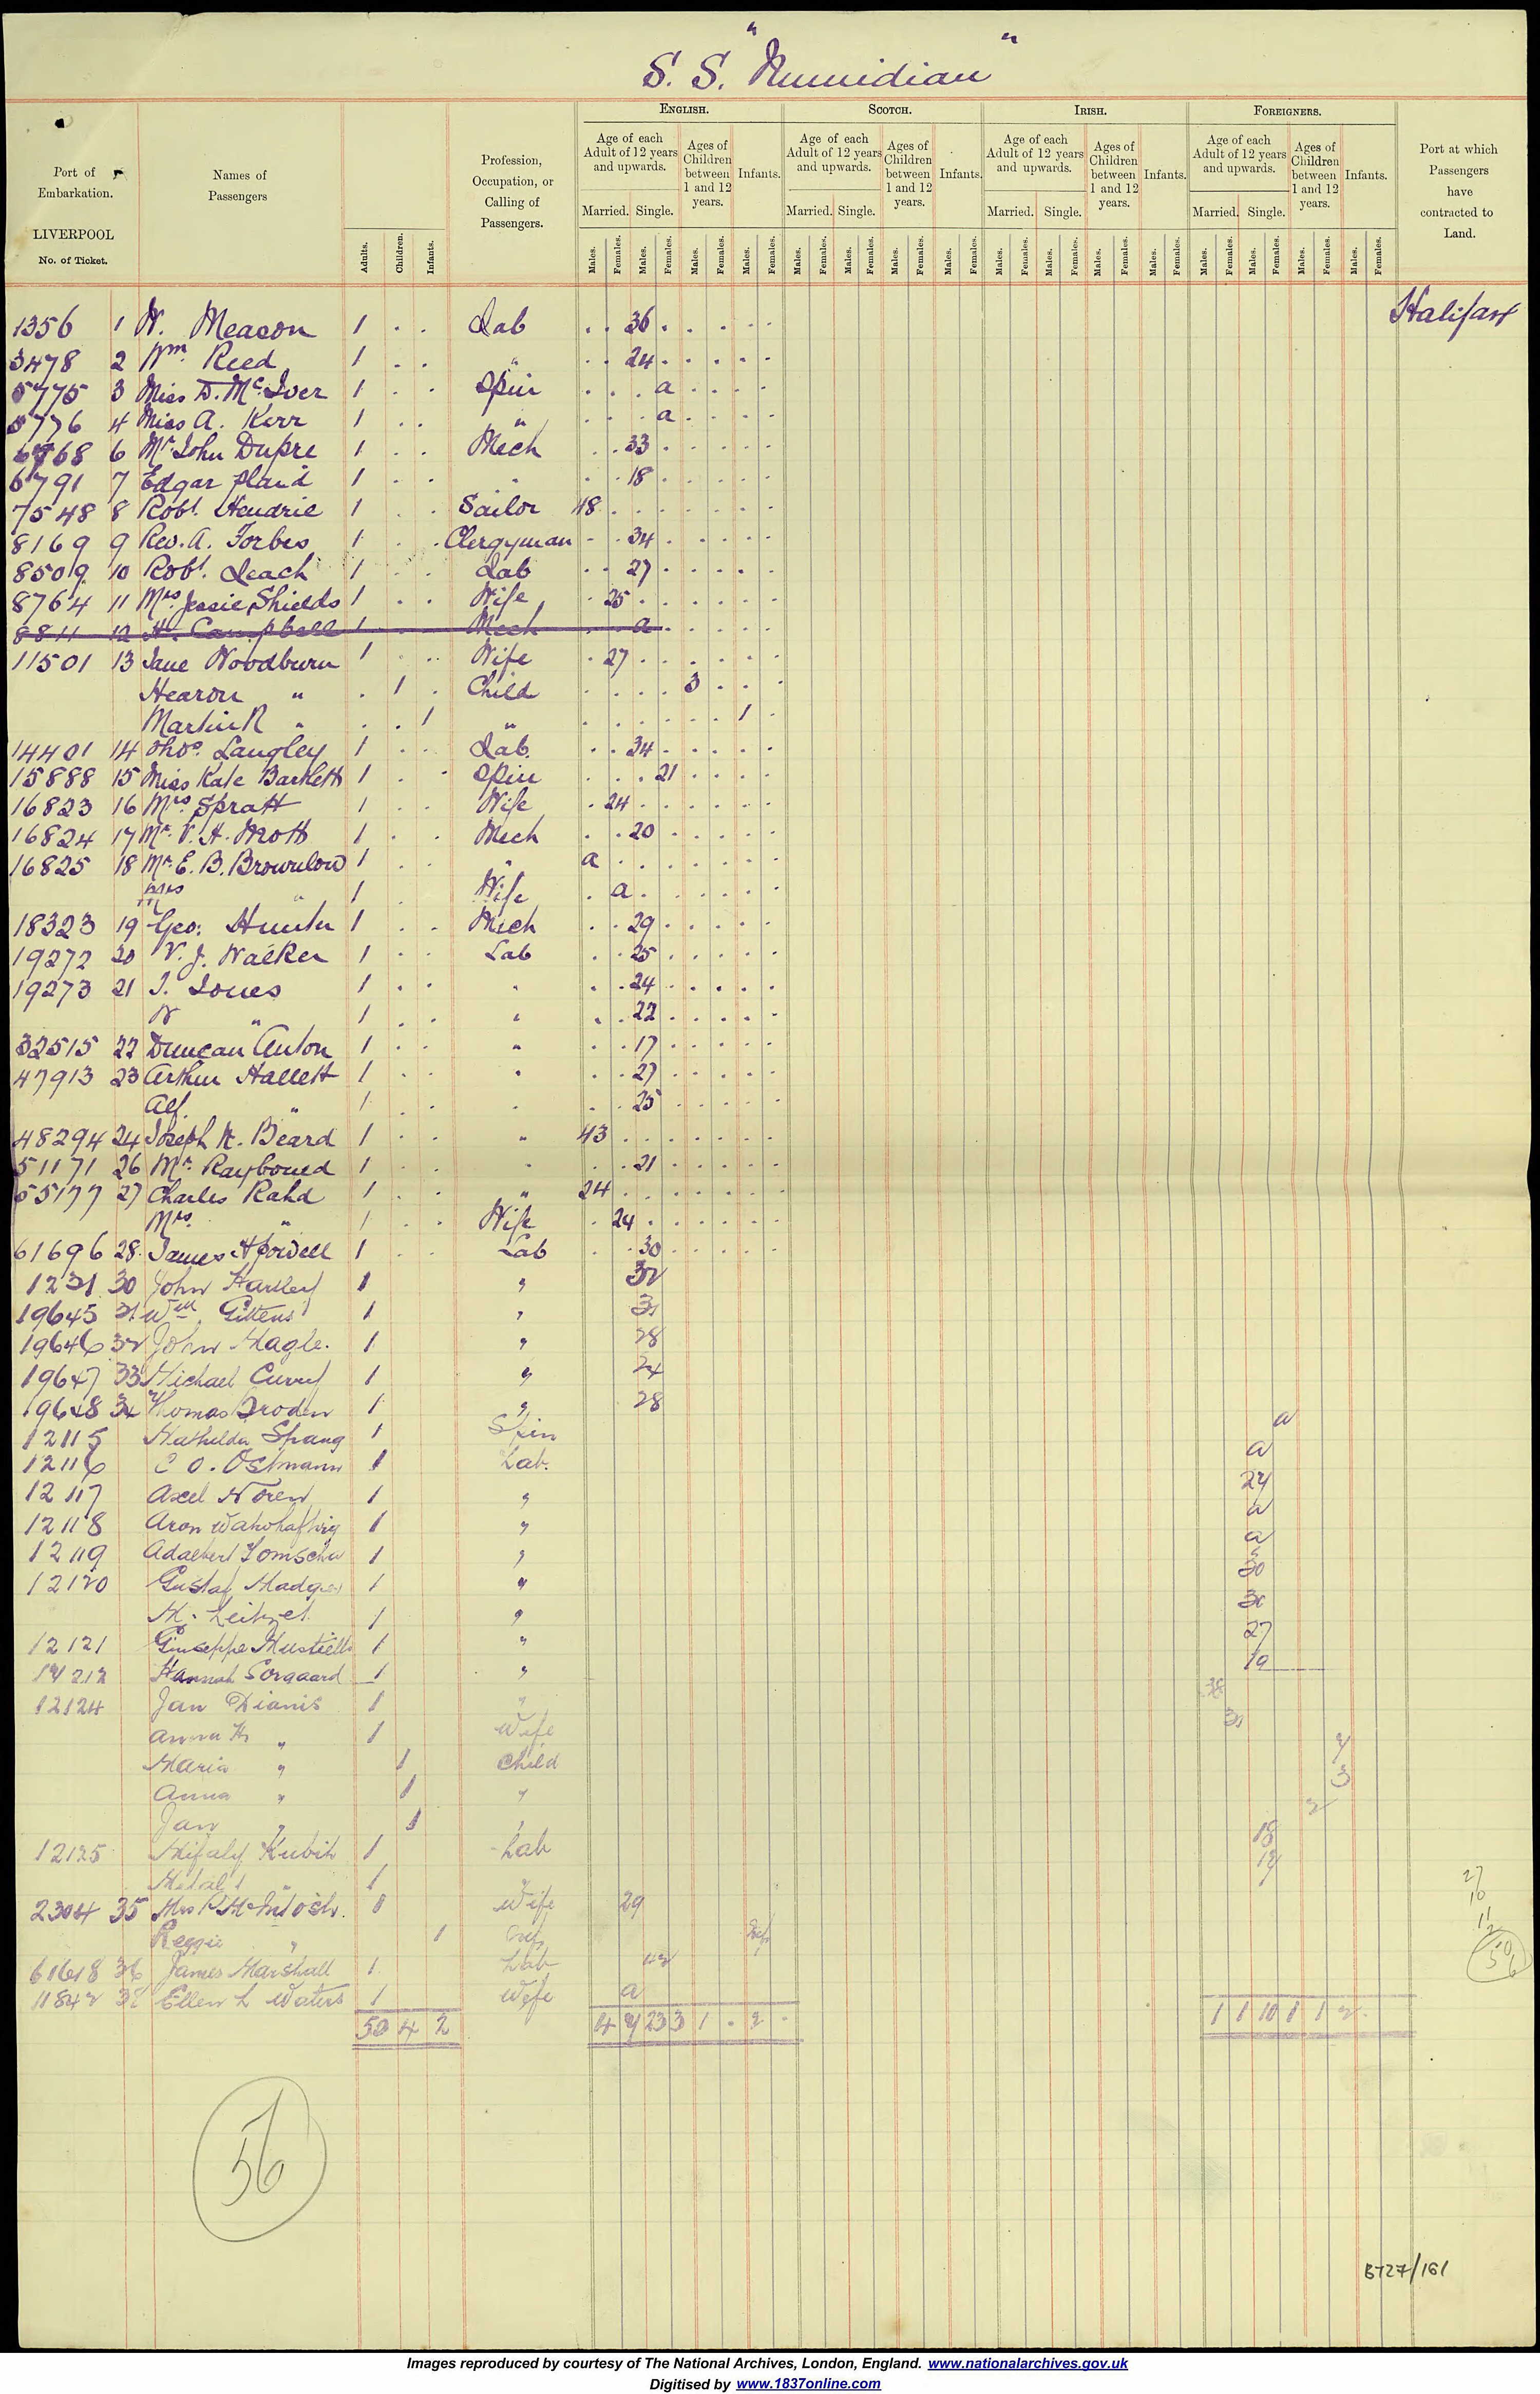 S. S. "Numidian"
ENGLISH. SCOTCH. IRISH. FOREIGNERS.
Port of Embarkation. LIVERPOOL No. of Ticket.
Names of Passengers
Adults. Children. Infants.
Profession, Occupation, or Calling of Passengers.
Age of each Adult of 12 years and upwards. Ages of Children between 1 and 12 years. Infants.
Age of each Adult of 12 years and upwards. Ages of Children between 1 and 12 years. Infants.
Age of each Adult of 12 years and upwards. Ages of Children between 1 and 12 years. Infants.
Age of each Adult of 12 years and upwards. Ages of Children between 1 and 12 years. Infants.
Port at which Passengers have contracted to Land.
Married. Single. Married. Single. Married. Single. Married. Single.
Males. Females. Males. Females. Males. Females. Males. Females. Males. Females. Males. Females. Males. Females. Males. Females. Males. Females. Males. Females. Males. Females. Males. Females. Males. Females. Males. Females. Males. Females. Males. Females.
1356 1 W. Meason 1 . . Lab 36 Halifax
3478 2 Wm. Reed 1 . . " 24
5775 3 Miss D. McIver 1 . . Spin a
5776 4 Miss A. Kerr 1 . . " a
6768 6 Mr John Dupre 1 . . Mech 33
6791 7 Edgar Plaid 1 . . " 18
7548 8 Robt. Hendrie 1 . . Sailor 18
8169 9 Rev. A. Forbes 1 . . Clergyman 34
8509 10 Robt. Leach 1 . . Lab 27
8764 11 Mrs. Jessie Shields 1 . . Wife 25
8811 12 H. Campbell 1 Mech a
11501 13 Jane Woodburn 1 . . Wife 27
Hearon " . 1 . Child 3
Martin R " . . 1 " 1
14401 14 Thos. Langley 1 . . Lab. 34
15888 15 Miss Kate Bartlett 1 . . Spin 21
16823 16 Mrs. Spratt 1 . . Wife 24
16824 17 Mr. V. H. Mott 1 . . Mech 20
16825 18 Mr E. B. Brownlow 1 . . " a
Mrs " 1 . Wife a
18323 19 Geo. Hunter 1 . . Mech 29
19272 20 V. J. Walker 1 . . Lab 25
19273 21 J. Jones 1 . . " 24
W " 1 . . " 22
32515 22 Duncan Anton 1 . . " 17
47913 23 Arthur Hallett 1 . . " 27
Alf. " 1 . . " 25
48294 24 Joseph K. Beard 1 . . " 43
51171 26 Mr. Raybould 1 . . " 21
55177 27 Charles Rahd 1 . . " 24
Mrs. " 1 . . Wife 24
61696 28 James Howell 1 . . Lab 30
1231 30 John Hartley 1 " 32
19645 31 Wm. Gittens 1 " 31
19646 32 John Nagle. 1 " 28
19647 33 Michael Curry 1 " 24
19648 34 Thomas Broden 1 " 28
12115 Mathilda Spang 1 Spin a
12116 C O. Ostmann 1 Lab. a
12117 Axel Noren 1 " 24
12118 Aron 1 " a
12119 Adalbert Tomscha 1 " a
12120 Gustaf 1 " 30
M. Leitzel 1 " 30
12121 Giuseppe 1 " 27
Hannah Sorgaard 1 " 19
12124 Jan Dianis 1 " 38
Anna " 1 Wife 30
Maria " 1 Child 7
Anna " 1 " 3
Jan " 1 " 2
12125 Mifaly Kubik 1 Lab 18
1 " 17
2304 35 Mrs McIntosh. 1 Wife 29
Reggie " 1 Inf
61618 36 James Marshall 1 Lab 42
11842 38 Ellen L Waters 1 Wife a
50 4 2 4 7 23 3 1 . 2 . 1 1 10 1 1 2
27
10
11
2
50
6
56
BT27/161
Images reproduced by courtesy of The National Archives, London, England. www.nationalarchives.gov.uk
Digitised by www.1837online.com